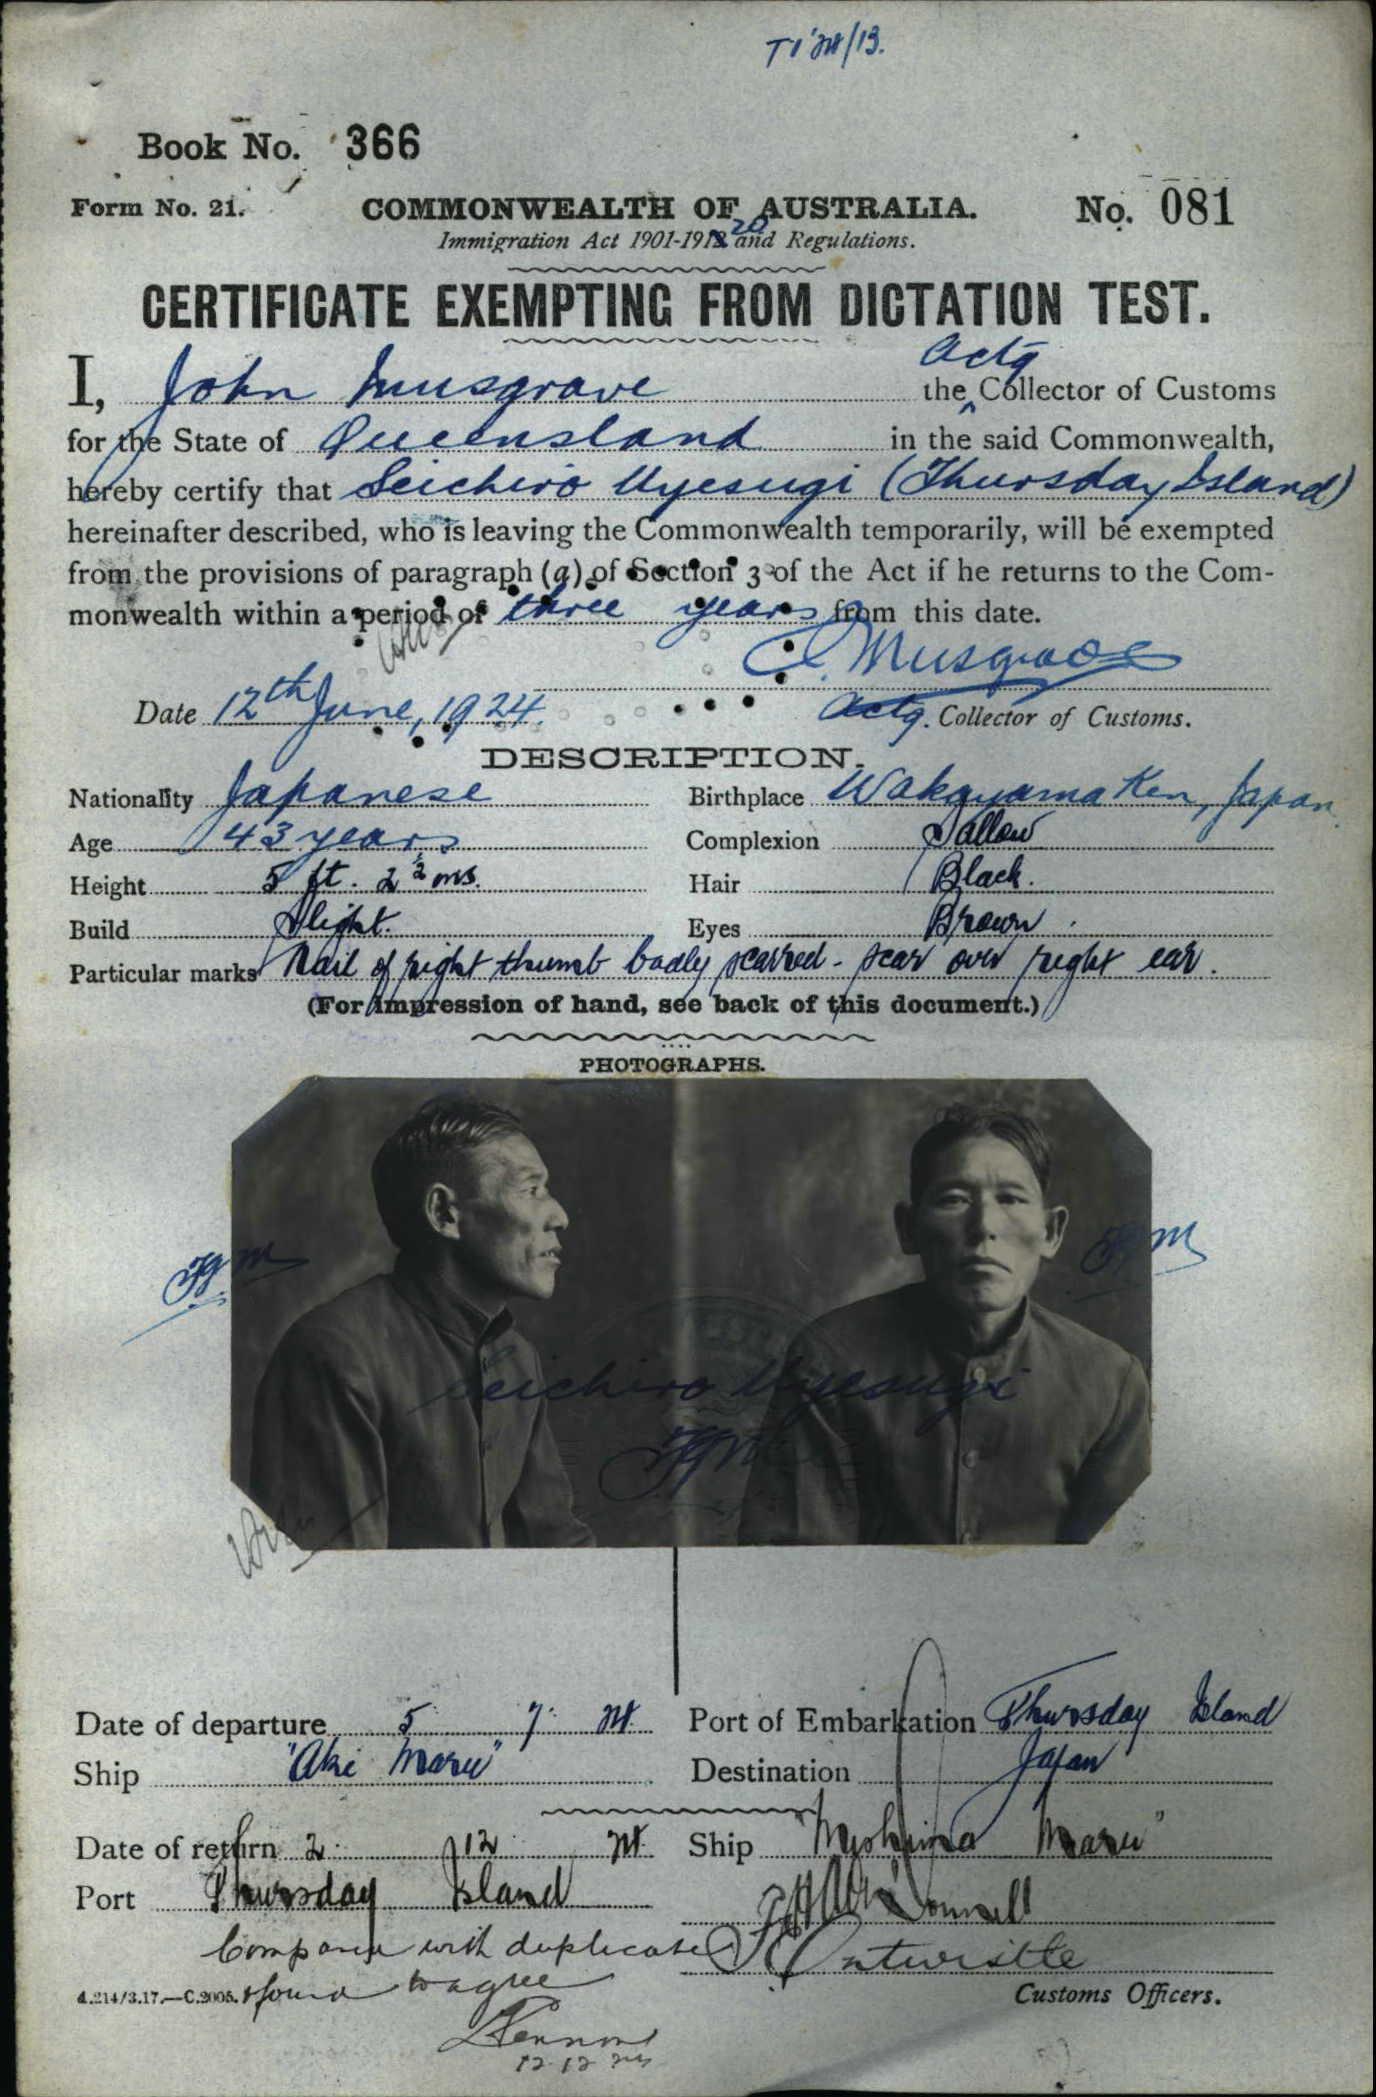 T I '24/13.
Book No. 366
Form No. 21. COMMONWEALTH OF AUSTRALIA. No. 081
Immigration Act 1901-1912 20 and Regulations.
CERTIFICATE EXEMPTING FROM DICTATION TEST.
Actg
I, John Musgrave the Collector of Customs
for the State of Queensland in the said Commonwealth,
hereby certify that Seichiro Uyesugi (Thursday Island)
hereinafter described, who is leaving the Commonwealth temporarily, will be exempted
from the provisions of paragraph (a) of Section 3 of the Act if he returns to the Com-
monwealth within a period of three years from this date.
Musgrave
Date 12th June, 1924. Actg. Collector of Customs.
DESCRIPTION.
Nationality Japanese Birthplace Wakayama Ken, Japan
Age 43 years Complexion Sallow
Height 5 ft. 2 ½ ins. Hair Black.
Build Slight. Eyes Brown.
Particular marks Nail of right thumb badly scarred - scar over right ear.
(For impression of hand, see back of this document.)
PHOTOGRAPHS.
Seichiro Uyesugi
Date of departure 5 7 24. Port of Embarkation Thursday Island
Ship "Aki Maru" Destination Japan
Date of return 2 12 24. Ship Maru"
Port Thursday Island
Compared with duplicate Entwistle
& found to agree
4.214/3.17.—C.2005. Customs Officers.
12.12.24